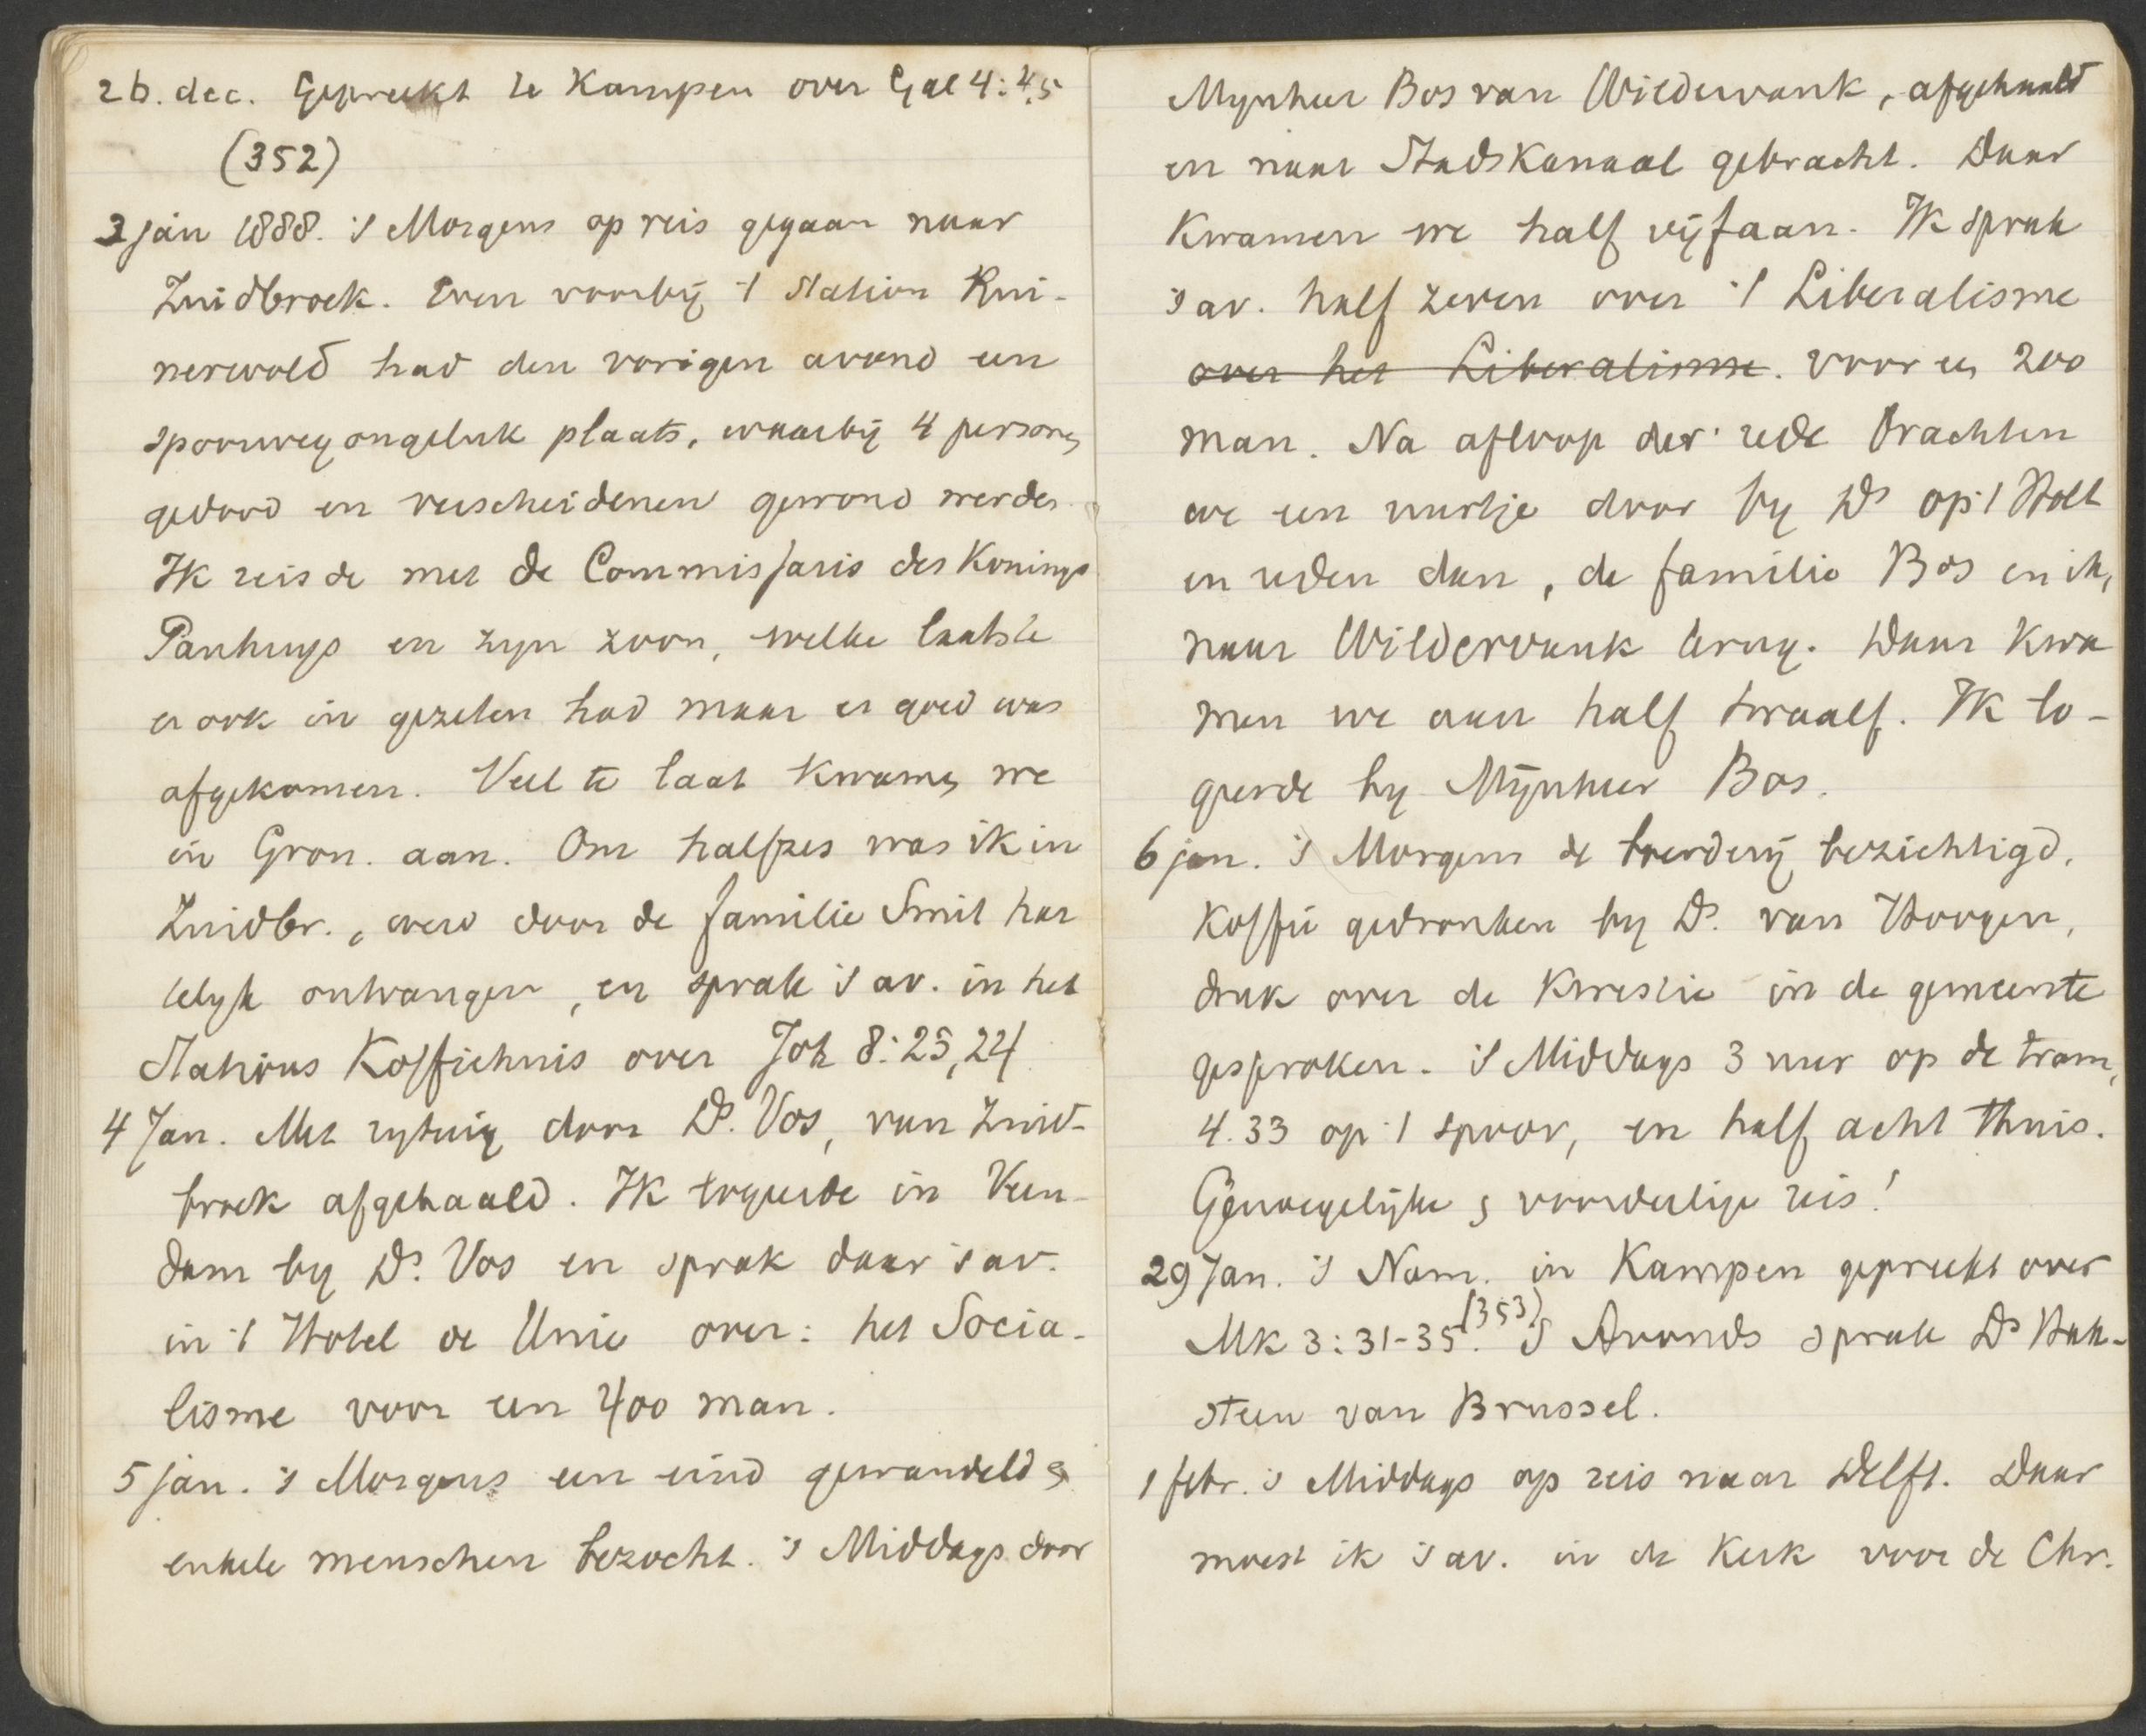 26. dec. Gepreekt te Kampen over Gal 4:4,5
(352)
3 jan 1888. 's Morgens op reis gegaan naar
Zuidbroek. Even voorbij 't station Rui-
nerwold had den vorigen avond een
spoorwegongeluk plaats, waarbij 4 personen
gedood en verscheidenen gewond werden.
Ik reisde met de Commissaris des Konings
Panhuys en zyn zoon, welke laatste
er ook in gezeten had maar er goed was
afgekomen. Veel te laat kwamen we
in Gron. aan. Om halfzes was ik in
Zuidbr., werd door de familie Smit har
telyk ontvangen, en sprak 's av. in het
Stations Koffiehuis over Joh 8:23,24
4 Jan. Met rytuig door Ds. Vos, van Zuid-
broek afgehaald. Ik logeerde in Veen-
dam by Ds. Vos en sprak daar 's av.
in 't Hotel de Unie over: het Socia-
lisme voor een 400 man.
5 jan. 's Morgens een eind gewandeld &
enkele menschen bezocht. 's Middags door
Mynheer Bos van Wildervank, afgehaald
en naar Stadskanaal gebracht. Daar
kwamen we half vijf aan. Ik sprak
's av. half zeven over 't Liberalisme
over het Liberalisme. voor een 200
man. Na afloop der rede brachten
we een uurtje door by Ds op 't Holt
en reden dan, de familie Bos en ik,
naar Wildervank terug. Daar kwa
men we aan half twaalf. Ik lo-
geerde by Mijnheer Bos.
6 jan. 's Morgens de boerderij bezichtigd,
koffie gedronken by Ds. van Hoogen,
druk over de kwestie in de gemeente
gesproken. 's Middags 3 uur op de tram,
4.33 op 't spoor, en half acht thuis.
Genoegelijke & voordeelige reis!
29 Jan. 's Nam. in Kampen gepreekt over
Mk 3:31-35. (353) 's Avonds sprak Ds
steen van Brussel.
1 febr. 's Middags op reis naar Delft. Daar
moest ik 's av. in de Kerk voor de Chr.